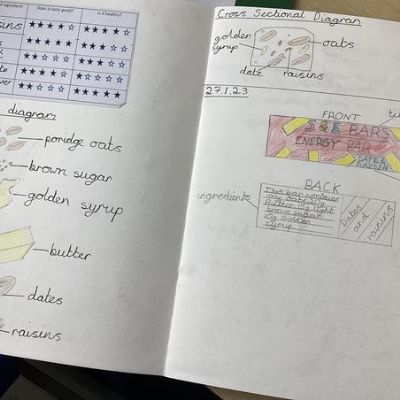 ingredient
Does it taste good?
Is it healthy?
diagram
poridge oats
brown sugar
golden syrup
butter
dates
raisins
Cross Sectional Diagram
golden
syrup
oats
date
raisins
27.1.23
FRONT
S&E BARS
ENERGY BAR
DATE &
RAISIN
BACK
ingredients
This bar contains
butter 15g light
brown sugar
10g Golden
syrup
Dates
and
raisins